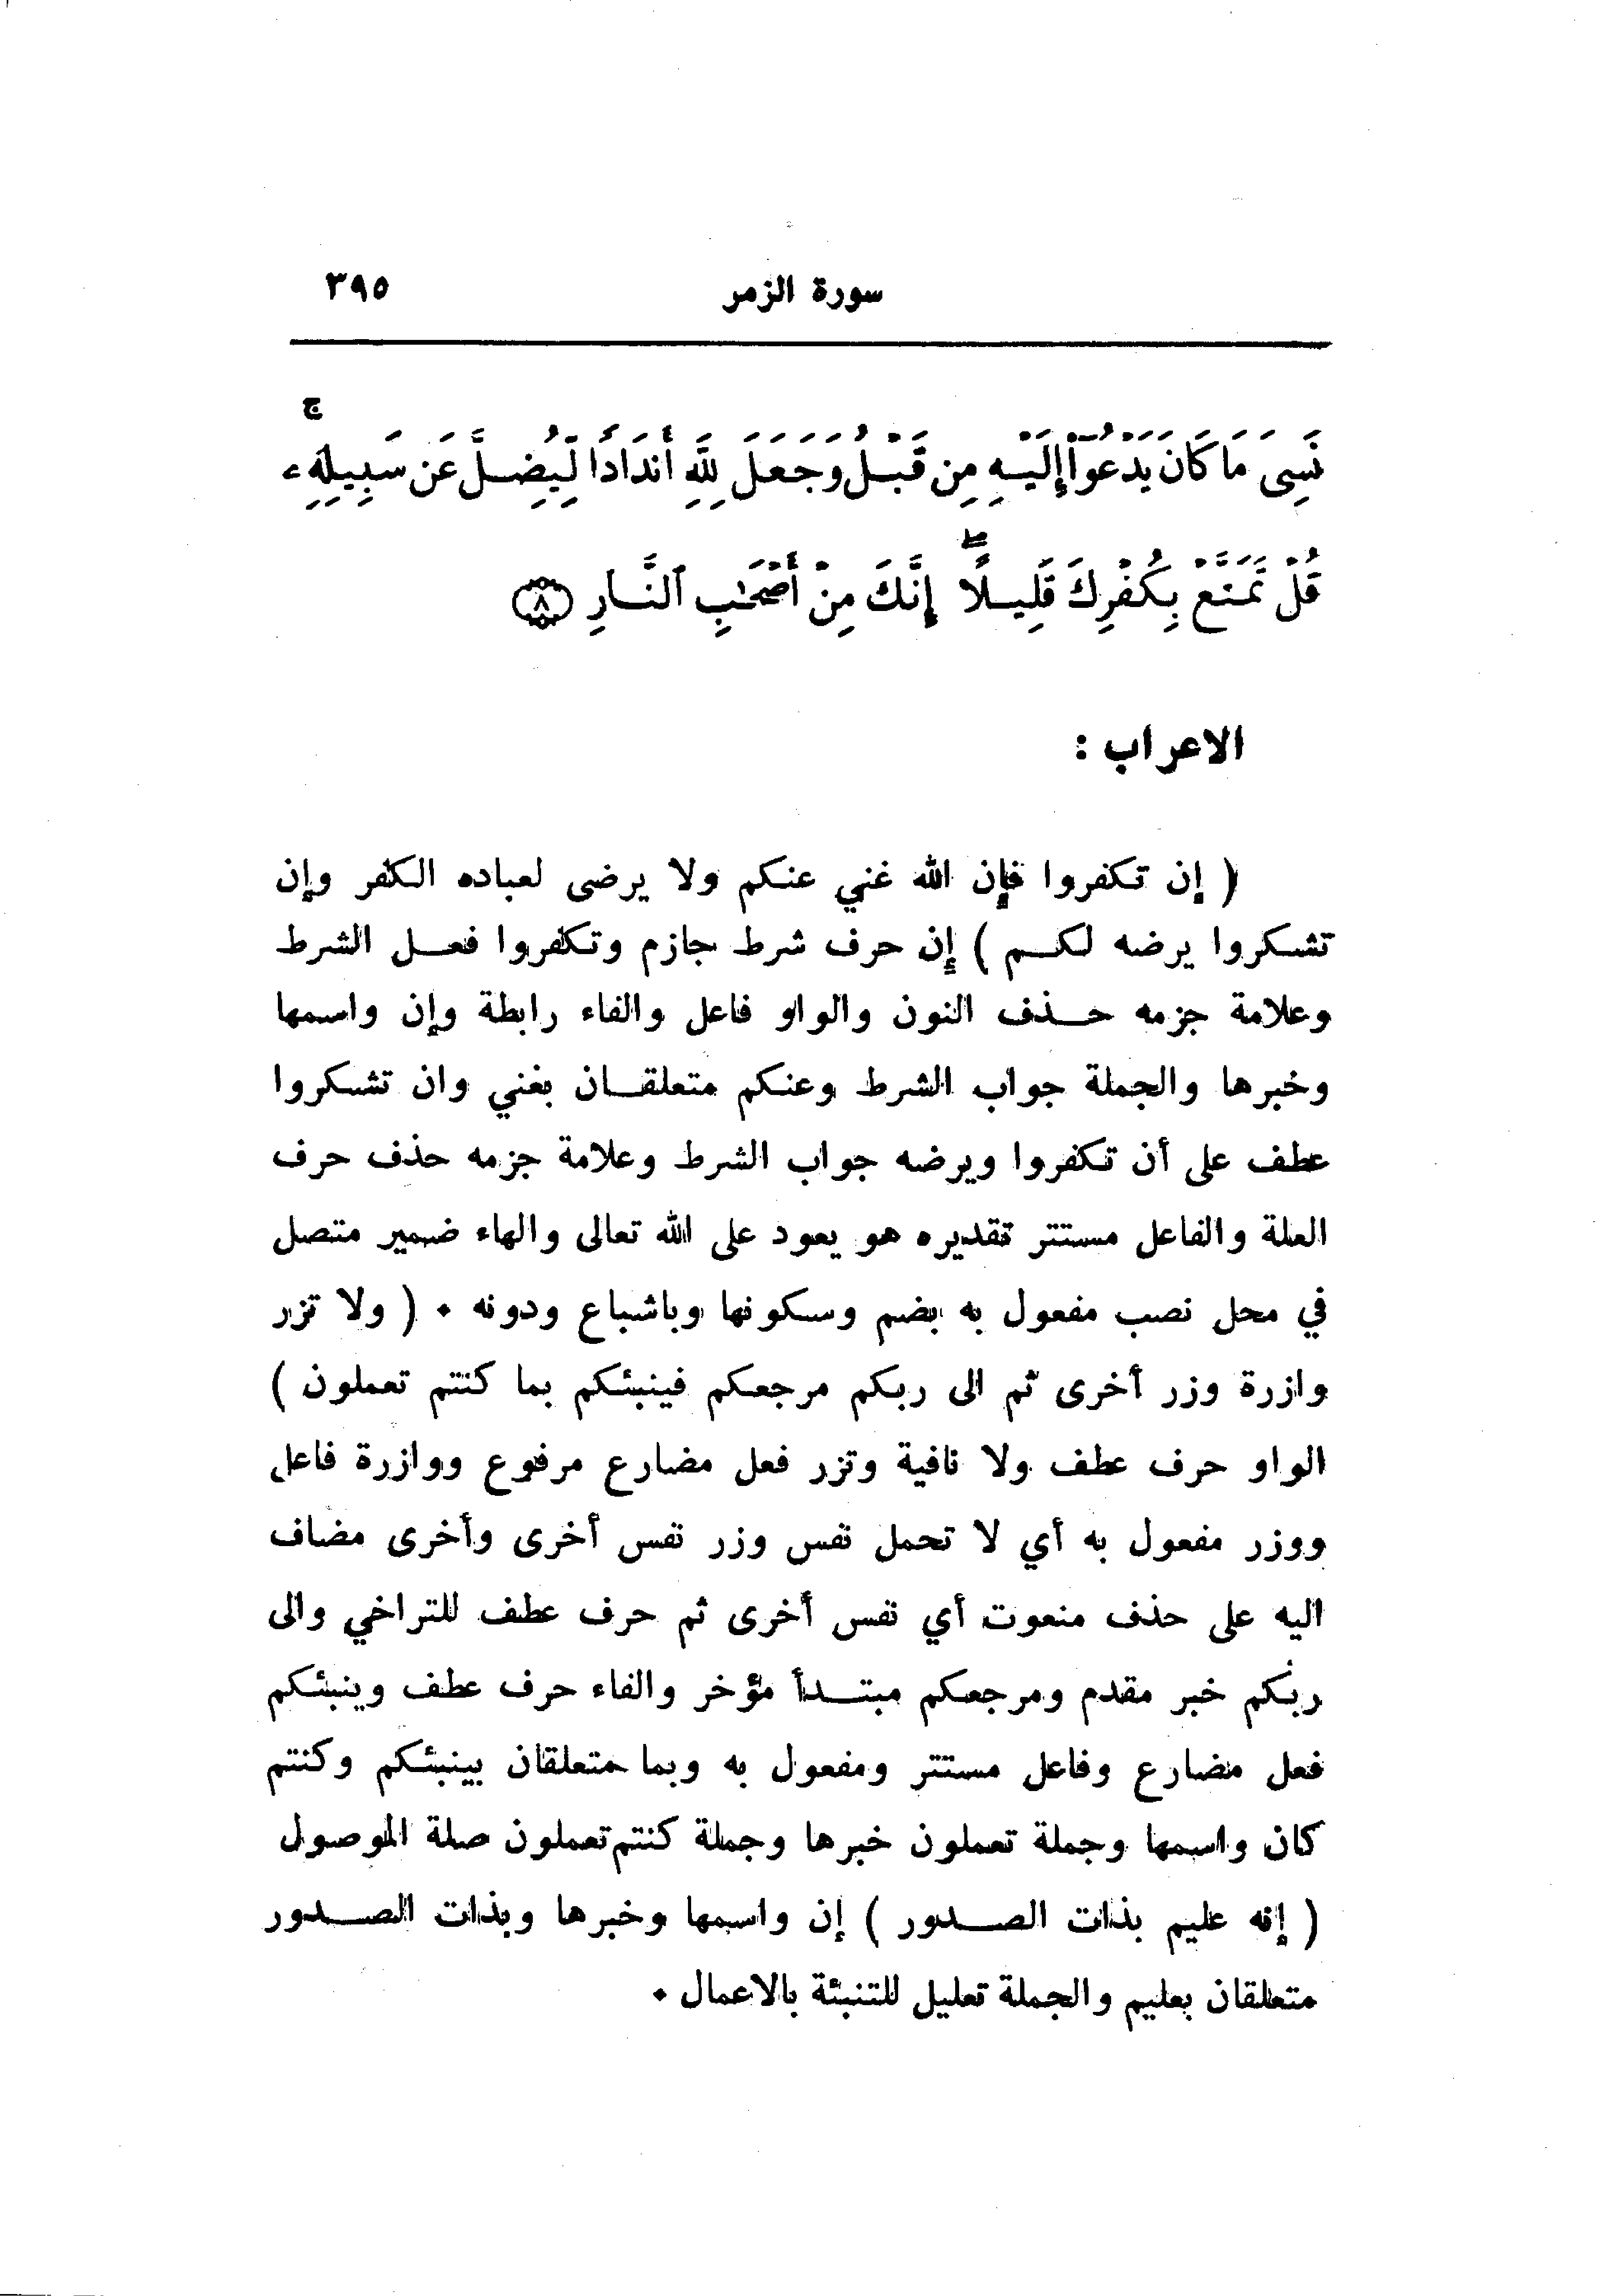 سورة الزمر ٣٩٥
نَسِىَ مَا كَانَ يَدْعُوٓا۟ إِلَيْهِ مِن قَبْلُ وَجَعَلَ لِلَّهِ أَندَادًا لِّيُضِلَّ عَن سَبِيلِهِۦ ۚ
قُلْ تَمَتَّعْ بِكُفْرِكَ قَلِيلًا ۖ إِنَّكَ مِنْ أَصْحَٰبِ ٱلنَّارِ ٨
الاعراب :
( إن تكفروا فإن الله غني عنكم ولا يرضى لعباده الكفر وإن
تشكروا يرضه لكم ) إن حرف شرط جازم وتكفروا فعل الشرط
وعلامة جزمه حذف النون والواو فاعل والفاء رابطة وإن واسمها
وخبرها والجملة جواب الشرط وعنكم متعلقان بغني وان تشكروا
عطف على أن تكفروا ويرضه جواب الشرط وعلامة جزمه حذف حرف
العلة والفاعل مستتر تقديره هو يعود على الله تعالى والهاء ضمير متصل
في محل نصب مفعول به بضم وسكونها وباشباع ودونه . ( ولا تزر
وازرة وزر أخرى ثم الى ربكم مرجعكم فينبئكم بما كنتم تعملون )
الواو حرف عطف ولا نافية وتزر فعل مضارع مرفوع ووازرة فاعل
ووزر مفعول به أي لا تحمل نفس وزر نفس أخرى وأخرى مضاف
اليه على حذف منعوت أي نفس أخرى ثم حرف عطف للتراخي والى
ربكم خبر مقدم ومرجعكم مبتدأ مؤخر والفاء حرف عطف وينبئكم
فعل مضارع وفاعل مستتر ومفعول به وبما متعلقان بينبئكم وكنتم
كان واسمها وجملة تعملون خبرها وجملة كنتم تعملون صلة الموصول
( إنه عليم بذات الصدور ) إن واسمها وخبرها وبذات الصدور
متعلقان بعليم والجملة تعليل للتنبئة بالاعمال .